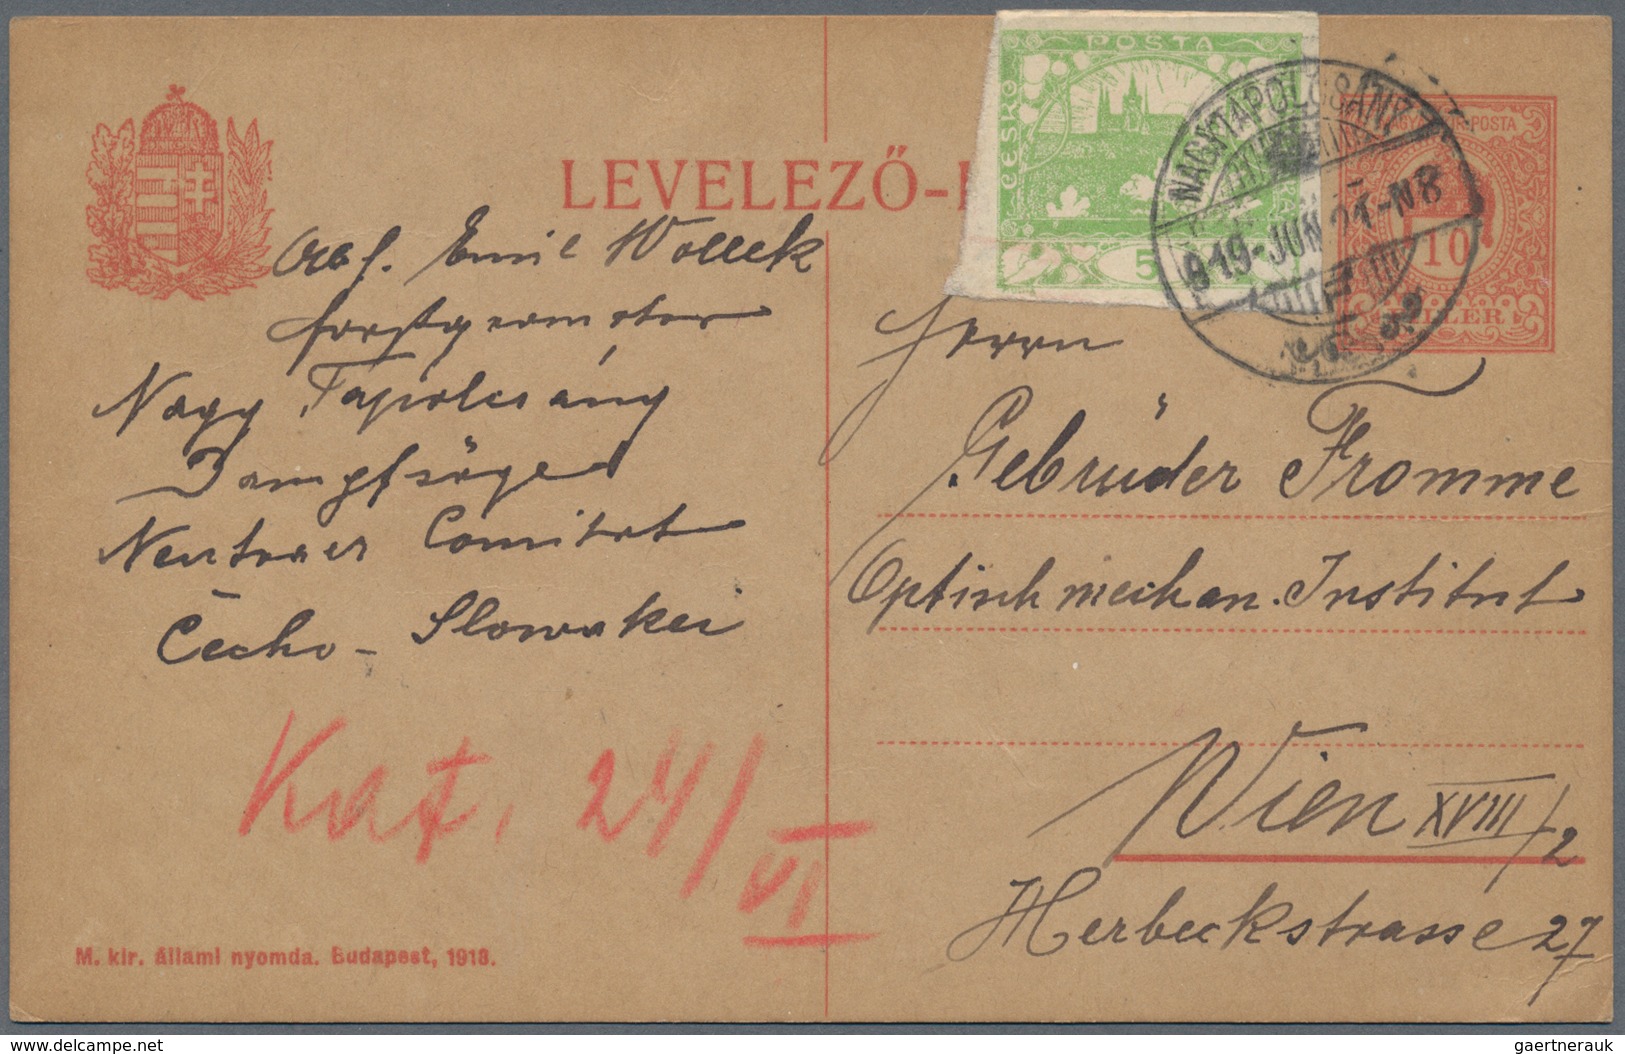 POSTA
ČESKO
5
NAGYTAPOLCSÁNY
919-JUN 21-N8
MAGYAR KIR. POSTA
10
FILLÉR
LEVELEZŐ-
Abs. Emil Wolleck
Forstgeometer
Nagy Tapolcsány
Dampfsäge
Neutraer Comitat
Čecho-Slowakei
Kat. 24/VI
M. kir. állami nyomda. Budapest, 1918.
Herrn
Gebrüder Fromme
Optisch mechan. Institut
Wien XVIII/2
Herbeckstrasse 27
gaertnerauk